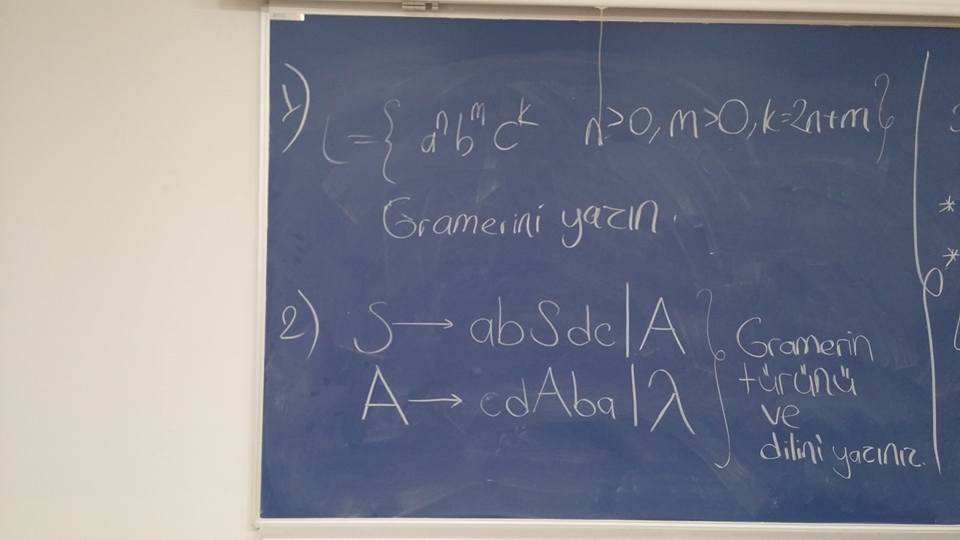 1) L = { aⁿ bᵐ cᵏ n>0, m>0, k=2n+m }
Gramerini yazın.
2) S → abSdc | A
A → cdAba | λ
} Gramerin
türünü
ve
dilini yazınız.
*
*